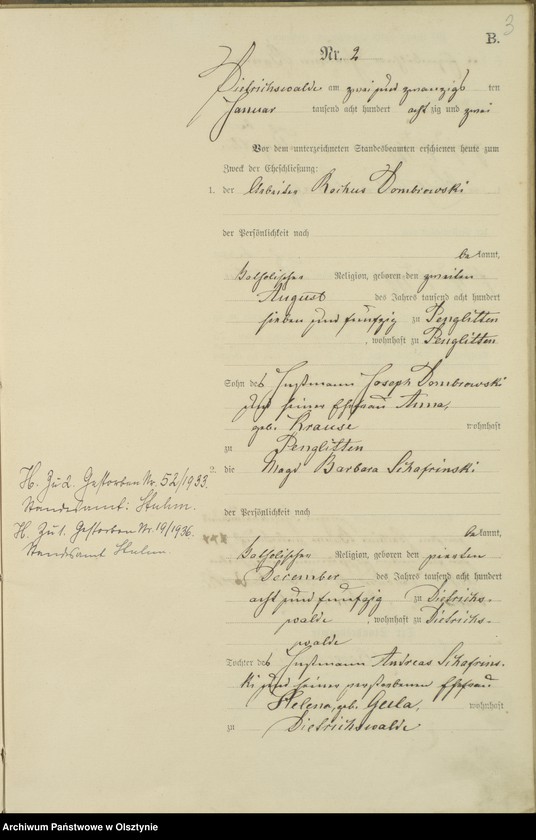 3
B.
Nr. 2
Dietrichswalde am zwei und zwanzigsten
Januar tausend acht hundert achtzig und zwei
Vor dem unterzeichneten Standesbeamten erschienen heute zum
Zweck der Eheschließung:
1. der Arbeiter Rochus Dombrowski
der Persönlichkeit nach
bekannt,
katholischer Religion, geboren den zweiten
August des Jahres tausend acht hundert
sieben und fünfzig zu Penglitten
, wohnhaft zu Penglitten
Sohn des Instmann Joseph Dombrowski
und seiner Ehefrau Anna,
geb. Krause wohnhaft
zu Penglitten
2. die Magd Barbara Sikofrinski
H. Zu 2. Gestorben Nr. 52/1933.
Standesamt: Stuhm.
H. Zu 1. Gestorben Nr. 19/1936.
Standesamt Stuhm.
der Persönlichkeit nach
bekannt,
katholischer Religion, geboren den vierten
December des Jahres tausend acht hundert
acht und fünfzig zu Dietrichs-
walde , wohnhaft zu Dietrichs-
walde
Tochter des Instmann Andreas Sikofrins-
ki und seiner verstorbenen Ehefrau
Helena, geb. Gerla, wohnhaft
zu Dietrichswalde
Archiwum Państwowe w Olsztynie